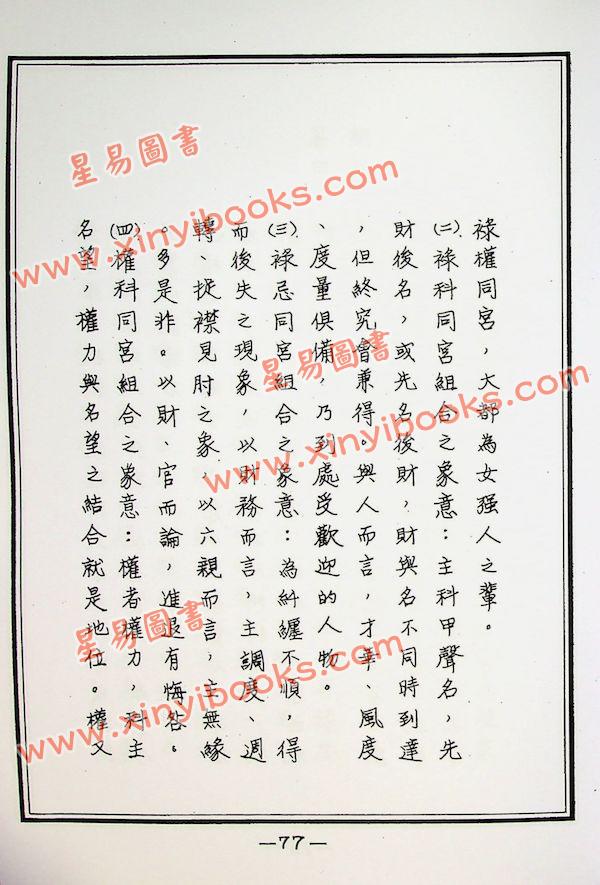 祿權同宮，大都為女強人之輩。
㈡祿科同宮組合之象意：主科甲聲名，先
財後名，或先名後財，財與名不同時到達
，但終究會兼得。與人而言，才華、風度
、度量俱備，乃到處受歡迎的人物。
㈢祿忌同宮組合之象意：為糾纏不順，得
而後失之現象，以財務而言，主調度、週
轉、捉襟見肘之象，以六親而言，主無緣
。多是非。以財、官而論，進退有悔咎。
㈣權科同宮組合之象意：權者權力，科主
名望，權力與名望之結合就是地位。權又
—77—
星易圖書
www.xinyibooks.com
星易圖書
www.xinyibooks.com
星易圖書
www.xinyibooks.com